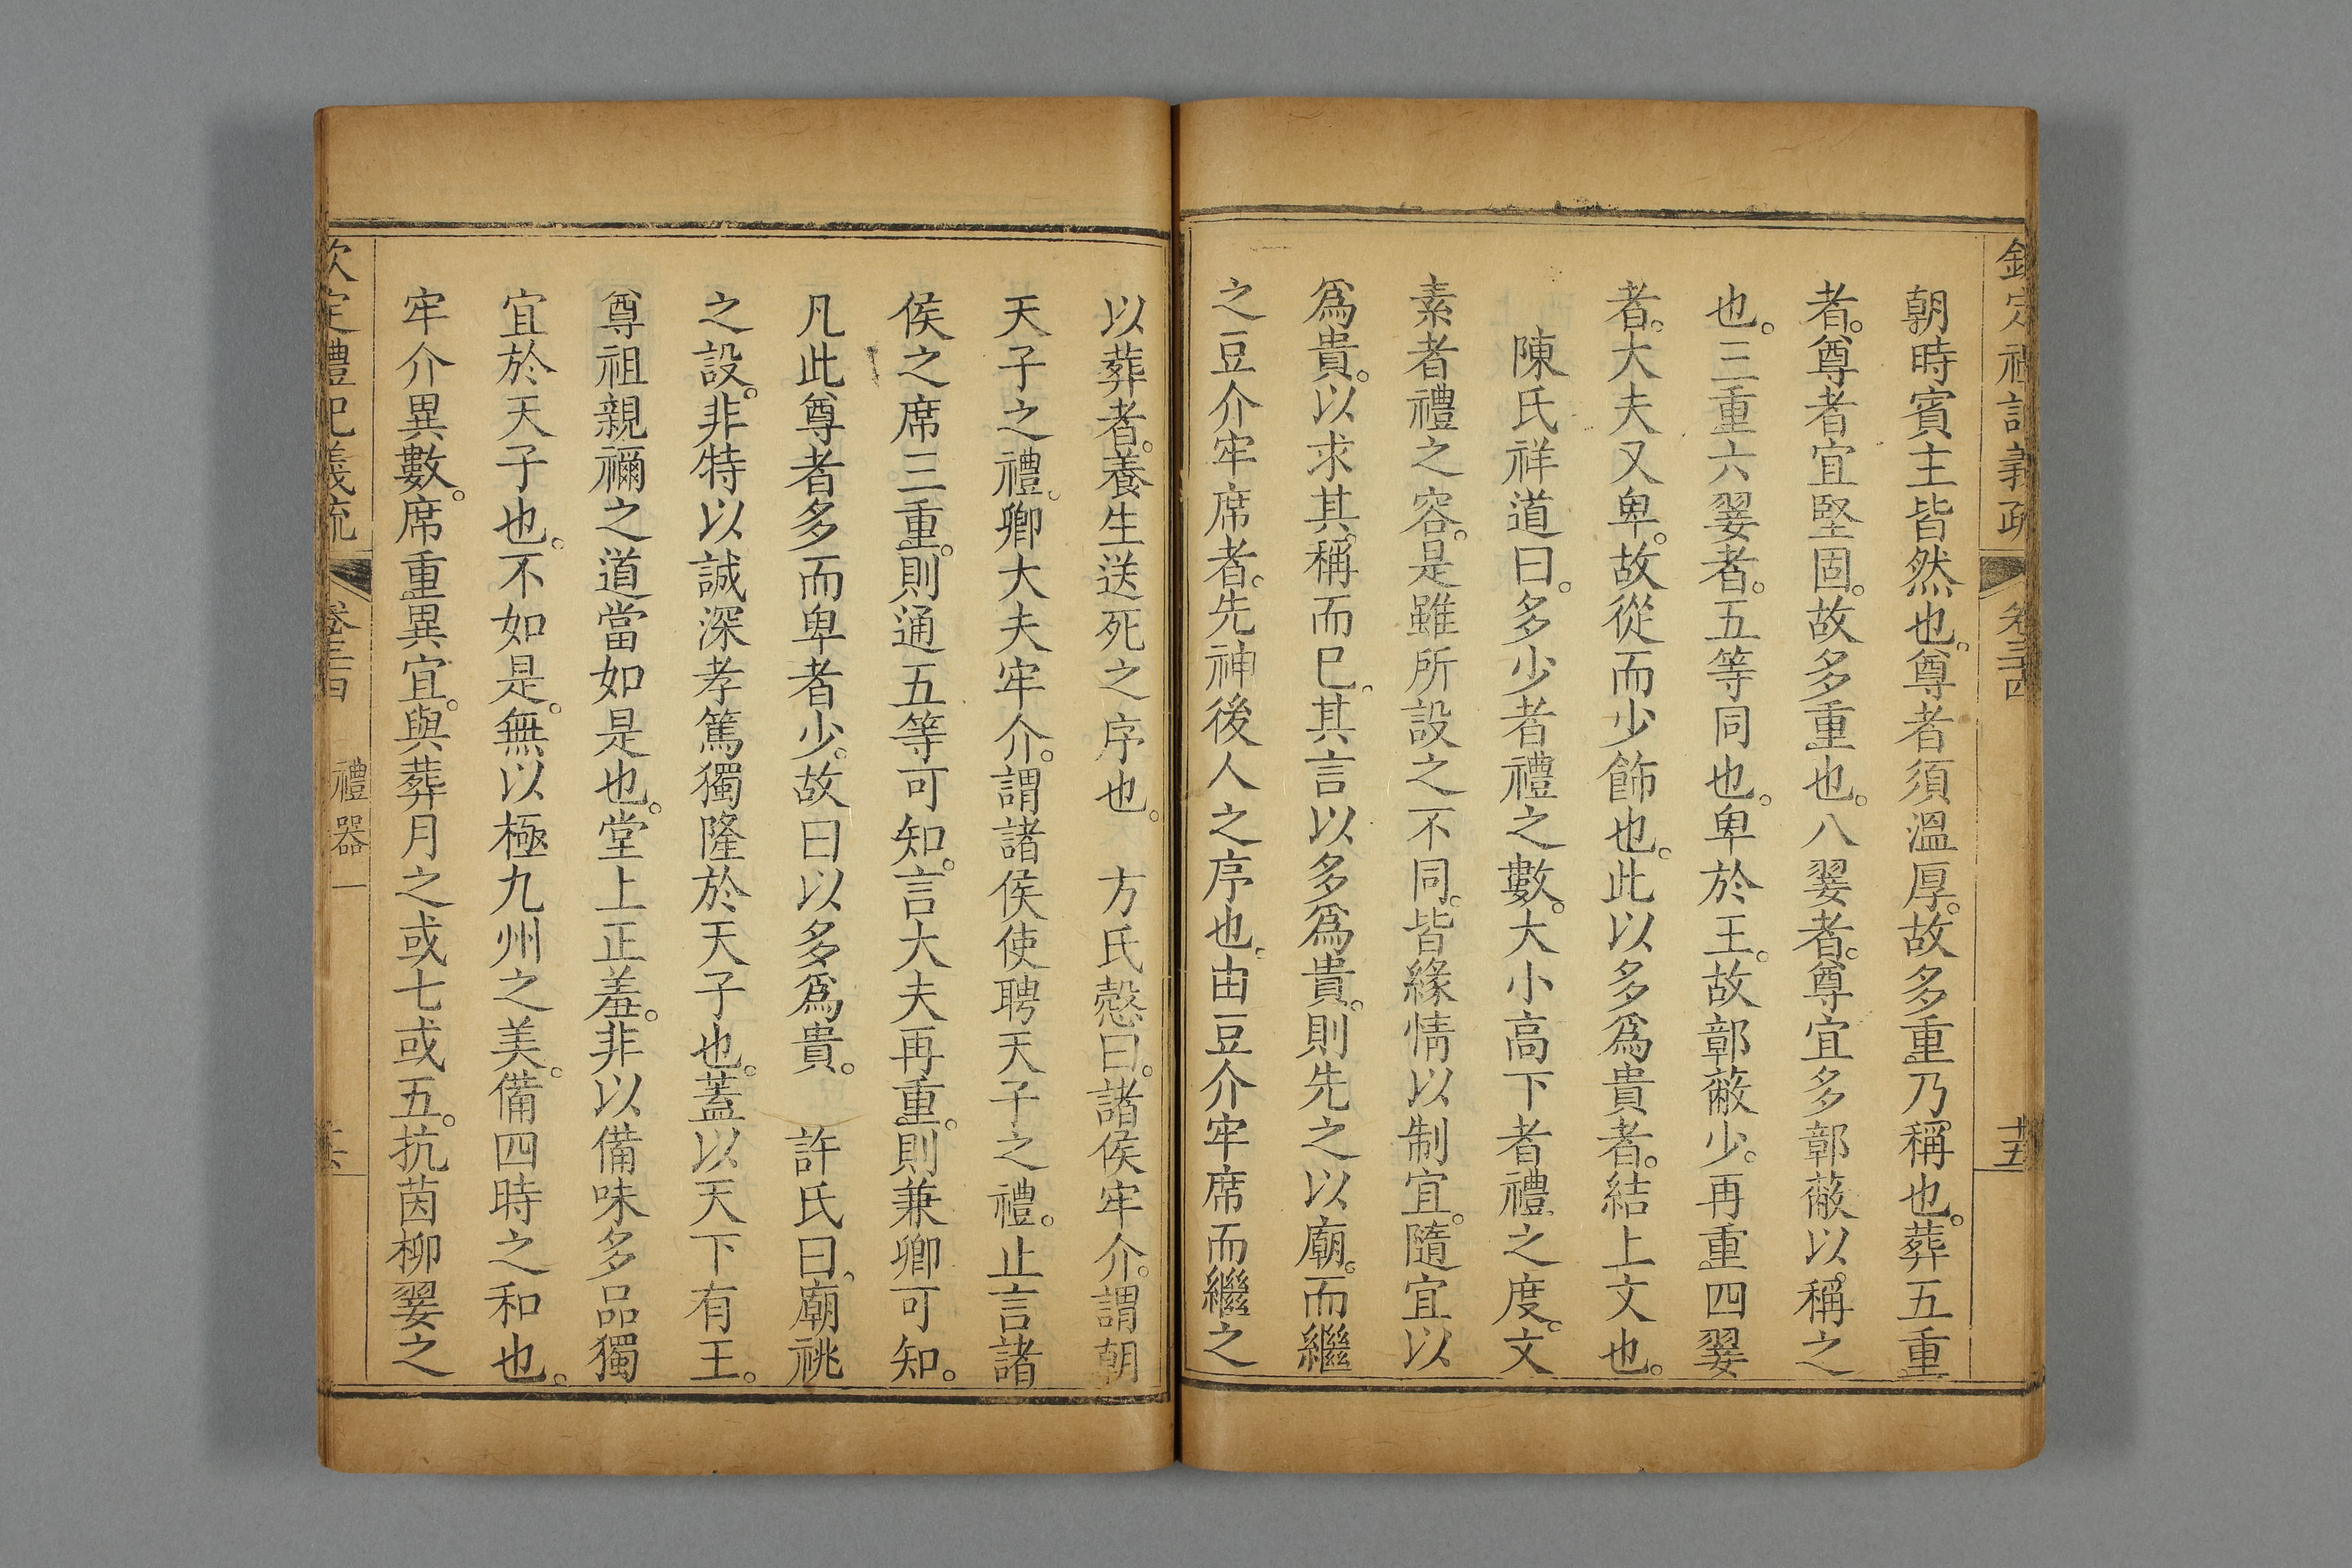 欽定禮記義疏 卷三十四 十五
朝時賓主皆然也。尊者須溫厚。故多重乃稱也。葬五重
者。尊者宜堅固。故多重也。八翣者。尊宜多鄣蔽以。稱之
也。三重六翣者。五等同也。卑於王。故鄣蔽少。再重四翣
者。大夫又卑。故從而少飾也。此以多爲貴者。結上文也。
陳氏祥道曰。多少者禮之數。大小高下者禮之度。文
素者禮之容。是雖所設之不同。皆緣情以制宜。隨宜以
爲貴。以求其稱而已。其言以多爲貴。則先之以廟。而繼
之豆介牢席者。先神後人之序也。由豆介牢席而繼之
以葬者。養生送死之序也。 方氏慤曰。諸侯牢介。謂朝
天子之禮。卿大夫牢介。謂諸侯使聘天子之禮。止言諸
侯之席三重。則通五等可知。言大夫再重。則兼卿可知。
凡此尊者多而卑者少。故曰以多爲貴。 許氏曰。廟祧
之設。非特以誠深孝篤獨隆於天子也。蓋以天下有王。
尊祖親禰之道當如是也。堂上正羞。非以備味多品獨
宜於天子也。不如是。無以極九州之美。備四時之和也。
牢介異數。席重異宜。與葬月之或七或五。抗茵柳翣之
欽定禮記義疏 卷三十四 禮器一